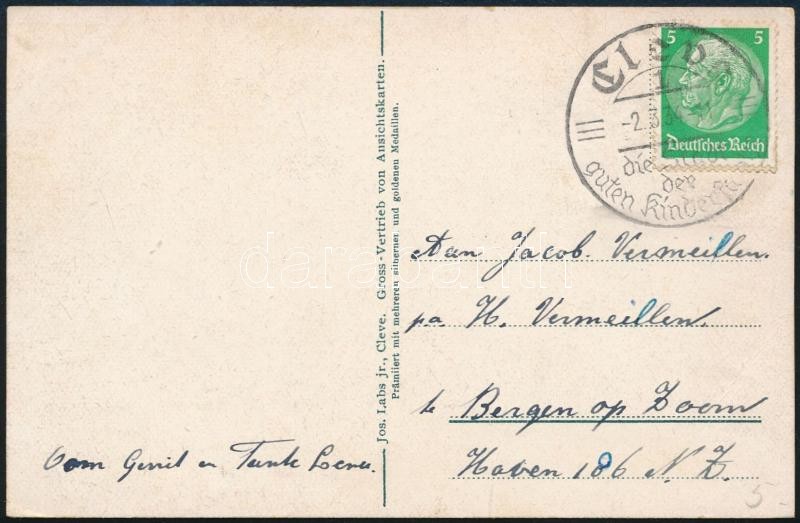 Cleve
5 5
-2.
Deutsches Reich
die
der
guten Kinder
Jos. Labs jr., Cleve. Gross-Vertrieb von Ansichtskarten.
Prämiiert mit mehreren silberner und goldenen Medaillen.
darabanth
Aan Jacob. Vermeillen.
pa. H. Vermeillen.
te Bergen op Zoom
Haven 186 N.Z.
Oom Gerrit en Tante
5-